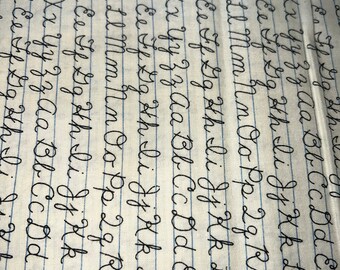 Ee Ff Gg Hh Ii Jj
Xx Yy Zz Aa Bb Cc Dd
Ee Ff Gg Hh Ii Jj Kk
Ll Mm Nn Oo Pp Qq R
Ee Ff Gg Hh Ii Jj Kk
Xx Yy Zz Aa Bb Cc Dd
Ee Ff Gg Hh Ii Jj Kk
Ll Mm Nn Oo Pp Qq R
Ee Ff Gg Hh Ii Jj Kk
Xx Yy Zz Aa Bb Cc Dd
Ee Ff Gg Hh Ii Jj